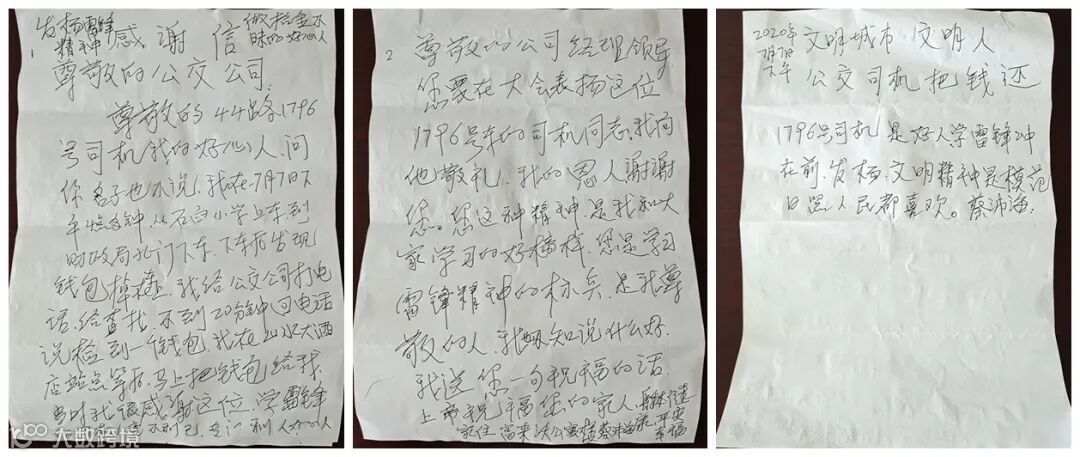 发杨雷锋
精神
感谢信
做拾金不
昧的好心人
1
尊敬的公交公司
尊敬的44路1796
号司机我的好心人.问
你名子也不说.我在7月7日下
午 钟从石臼小学上车到
财政局北门下车.下车后发现
钱包掉 我给公交公司打电
话.给查找.不到20分钟回电话
说检到一个钱包.我在山水大酒
店站点等.马上把钱包给我.
当时我很感谢这位.学雷锋
利己.专门利人
2
尊敬的公司经理领导
您要在大会表扬这位
1796号车的司机同志.我向
他敬礼.我的恩人谢谢
您。您这种精神.是我和大
家学习的好榜样.您是学习
雷锋精神的标兵.是我尊
敬的人.我 知说什么好.
我送您一句祝福的话.
上 祝福您的家人
平安
幸福
家住
2020年
7月7日
下午
文明城市 文明人
公交司机把钱还
1796号司机是好人学雷锋冲
在前.发杨.文明精神是模范
日照人民都喜欢。蔡沛海.
大数跨境